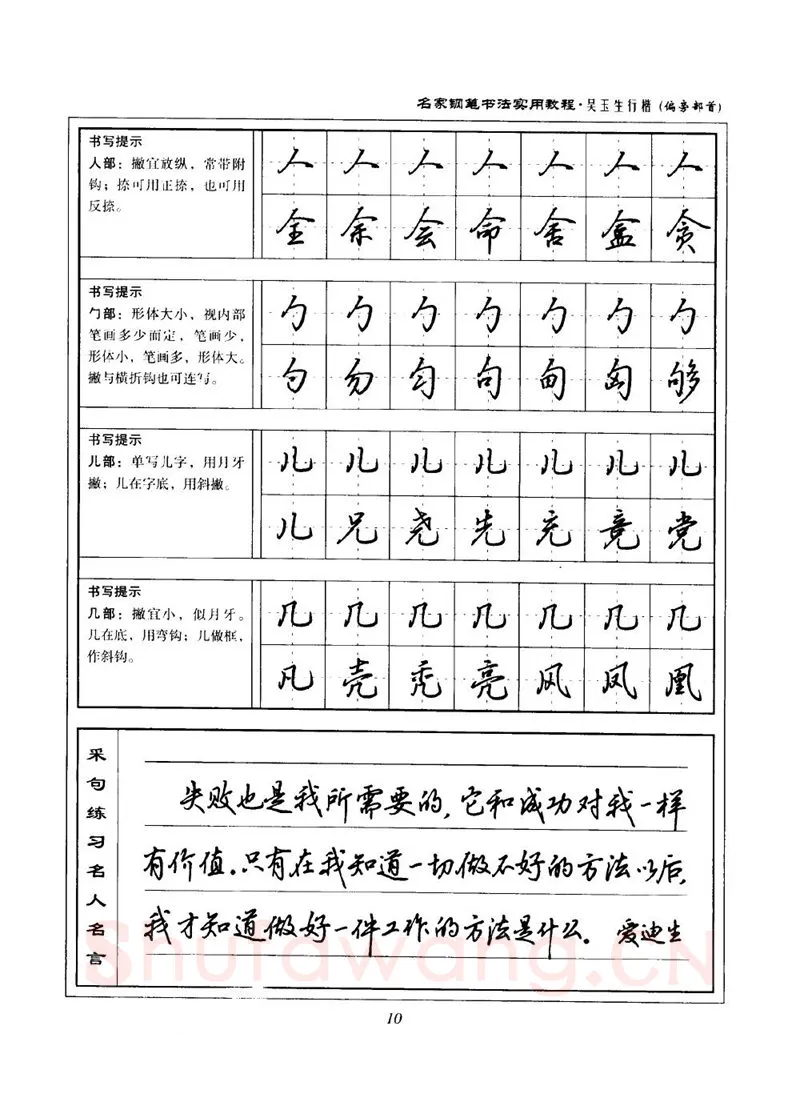 名家钢笔书法实用教程·吴玉生行楷（偏旁部首）
书写提示
人部：撇宜放纵，常带附
钩；捺可用正捺，也可用
反捺。
人人人人人人人
全余会命舍盒贪
书写提示
勹部：形体大小，视内部
笔画多少而定，笔画少，
形体小，笔画多，形体大。
撇与横折钩也可连写。
勹勹勹勹勹勹勹
勺勿匀句甸匈够
书写提示
儿部：单写儿字，用月牙
撇；儿在字底，用斜撇。
儿儿儿儿儿儿儿
儿兄尧先充竟党
书写提示
几部：撇宜小，似月牙。
几在底，用弯钩；几做框，
作斜钩。
几几几几几几几
凡壳秃亮风凤凰
采句练习名人名言
失败也是我所需要的，它和成功对我一样
有价值。只有在我知道一切做不好的方法以后，
我才知道做好一件工作的方法是什么。 爱迪生
Shufawang.CN
10